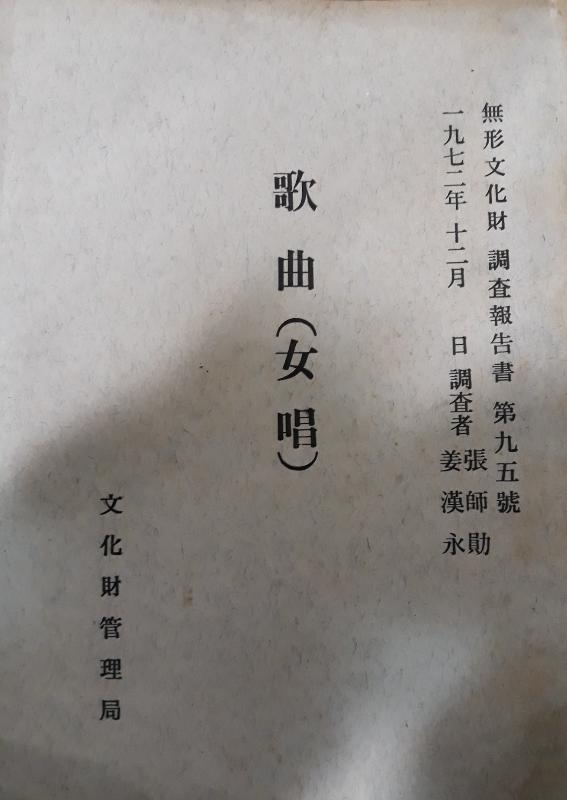 無形文化財 調査報告書 第九五號
一九七二年 十二月 日 調査者 張師勛
姜漢永
歌曲(女唱)
文化財管理局